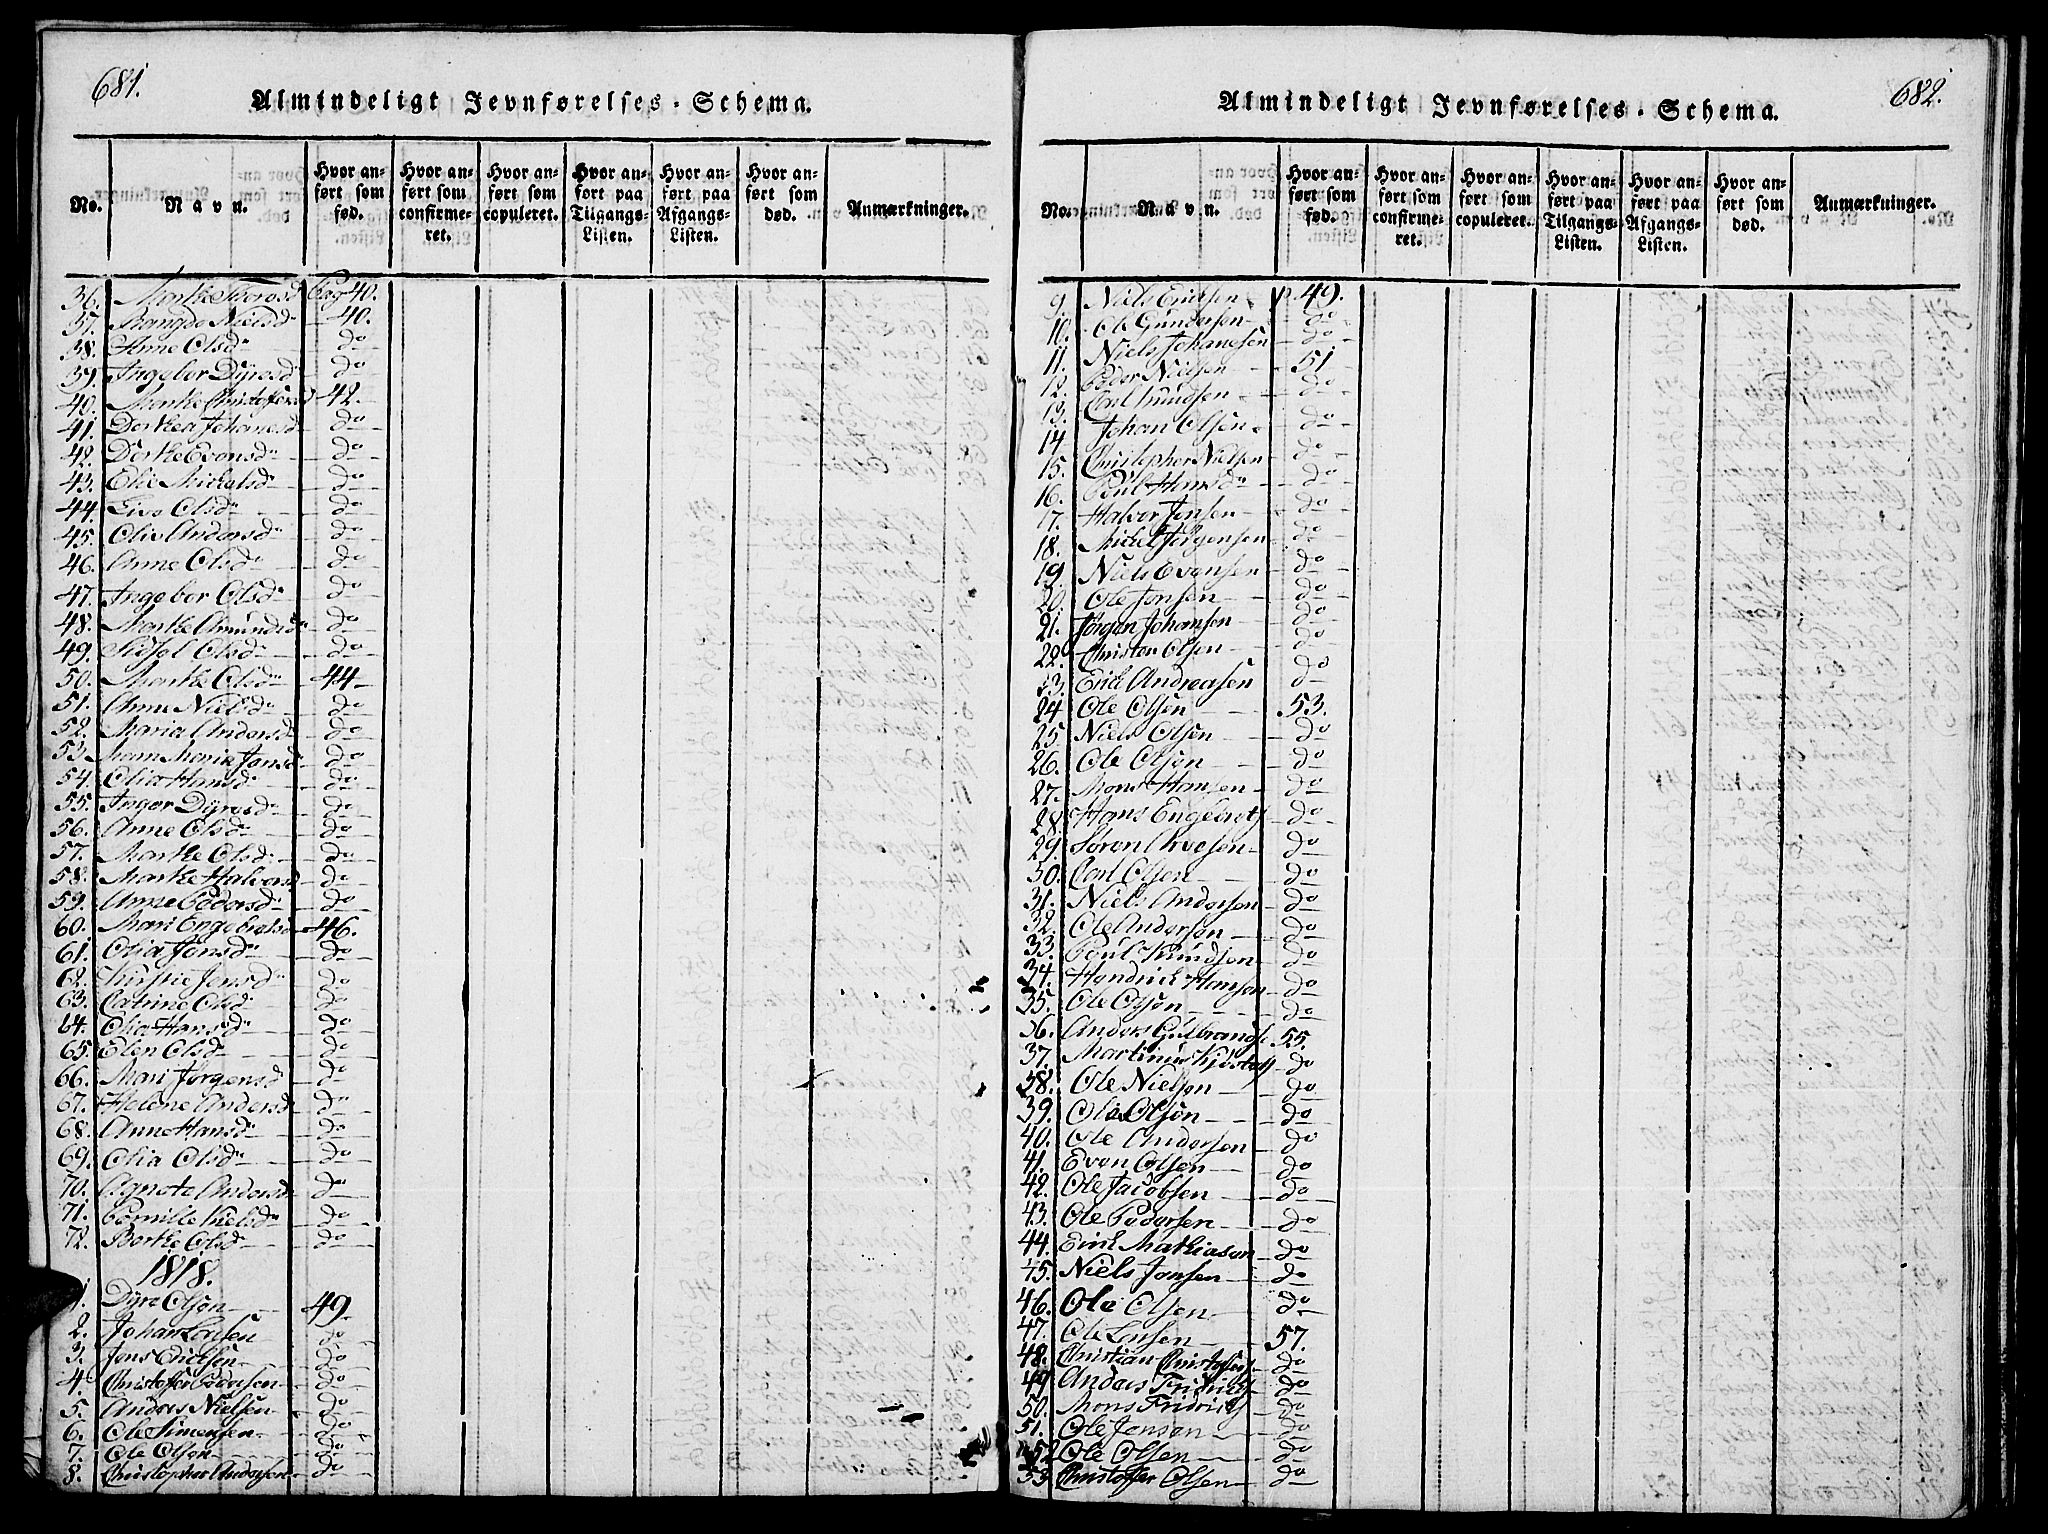 681.
Almindeligt Jevnførelses-Schema.
No. Navn. Hvor anført som fød. Hvor anført som confirmeret. Hvor anført som copuleret. Hvor anført paa Tilgangs-Listen. Hvor anført paa Afgangs-Listen. Hvor anført som død. Anmærkninger.
36. Marthe Thorsd Pag 40.
37. Mangde Nielsd 40.
38. Anne Olsd do
39. Ingebor Dÿresd do
40. Marthe Christofersd 42.
41. Dorthea Johanesd do
42. Dorthe Evensd do
43. Elie Mickelsd do
44. Live Olsd do
45. Olie Andersd do
46. Anne Olsd do
47. Ingebor Olsd do
48. Marthe Amundsd do
49. Sidsel Olsd do
50. Marthe Olsd 44
51. Anne Nielsd do
52. Maria Andersd do
53. Maria Jonsd do
54. Olia Hansd do
55. Inger Dÿresd do
56. Anne Olsd do
57. Marthe Olsd do
58. Marthe Halvorsd do
59. Anne Pedersd do
60. Mari Engebretsd 46.
61. Olia Jonsd do
62. Kirstie Jensd do
63. Catrine Olsd do
64. Olia Hansd do
65. Elen Olsd do
66. Mari Jørgensd do
67. Helene Andersd do
68. Anne Hansd do
69. Olia Olsd do
70. Agnete Andersd do
71. Pernille Nielsd do
72. Berthe Olsd do
1818.
1. Dÿre Olsen 49.
2. Johan Larsen do
3. Jens Ericksen do
4. Christoffer Pedersen do
5. Anders Nielsen do
6. Ole Simensen do
7. Ole Olsen do
8. Christopher Andersen do
682.
Almindeligt Jevnførelses-Schema.
No. Navn. Hvor anført som fød. Hvor anført som confirmeret. Hvor anført som copuleret. Hvor anført paa Tilgangs-Listen. Hvor anført paa Afgangs-Listen. Hvor anført som død. Anmærkninger.
9. Niels Ericksen p. 49.
10. Ole Gundersen do
11. Niels Johanesen do
12. Peder Nielsen 51
13. Carl Knudsen do
14. Johan Olsen do
15. Christopher Nielsen do
16. Poul Hans do
17. Halvor Jensen do
18. Mickel Jørgensen do
19. Niels Evensen do
20. Ole Jonsen do
21. Jørgen Johansen do
22. Christen Olsen do
23. Erik Andreasen do
24 Ole Olsen 53.
25 Niels Olsen do
26. Ole Olsen do
27. Mons Hansen do
28. Hans Engebrets do
29. Søren Arvesen do
30. Carl Olsen do
31. Niels Andersen do
32. Ole Andersen do
33. Poul Knudsen do
34. Hendrick Hansen do
35. Ole Olsen do
36. Anders Gulbrands 55.
37. Martinus do
38. Ole Nielsen do
39. Ole Olsen do
40. Ole Andersen do
41. Even Olsen do
42. Ole Jacobsen do
43. Ole Pedersen do
44. Erik Mathiasen do
45. Niels Jonsen do
46. Ole Olsen do
47. Ole Larsen 57.
48. Christian Christoffers do
49 Anders Fridrichs do
50. Mons Fridrichs do
51. Ole Jensen do
52 Ole Olsen do
53 Christoffer Olsen do